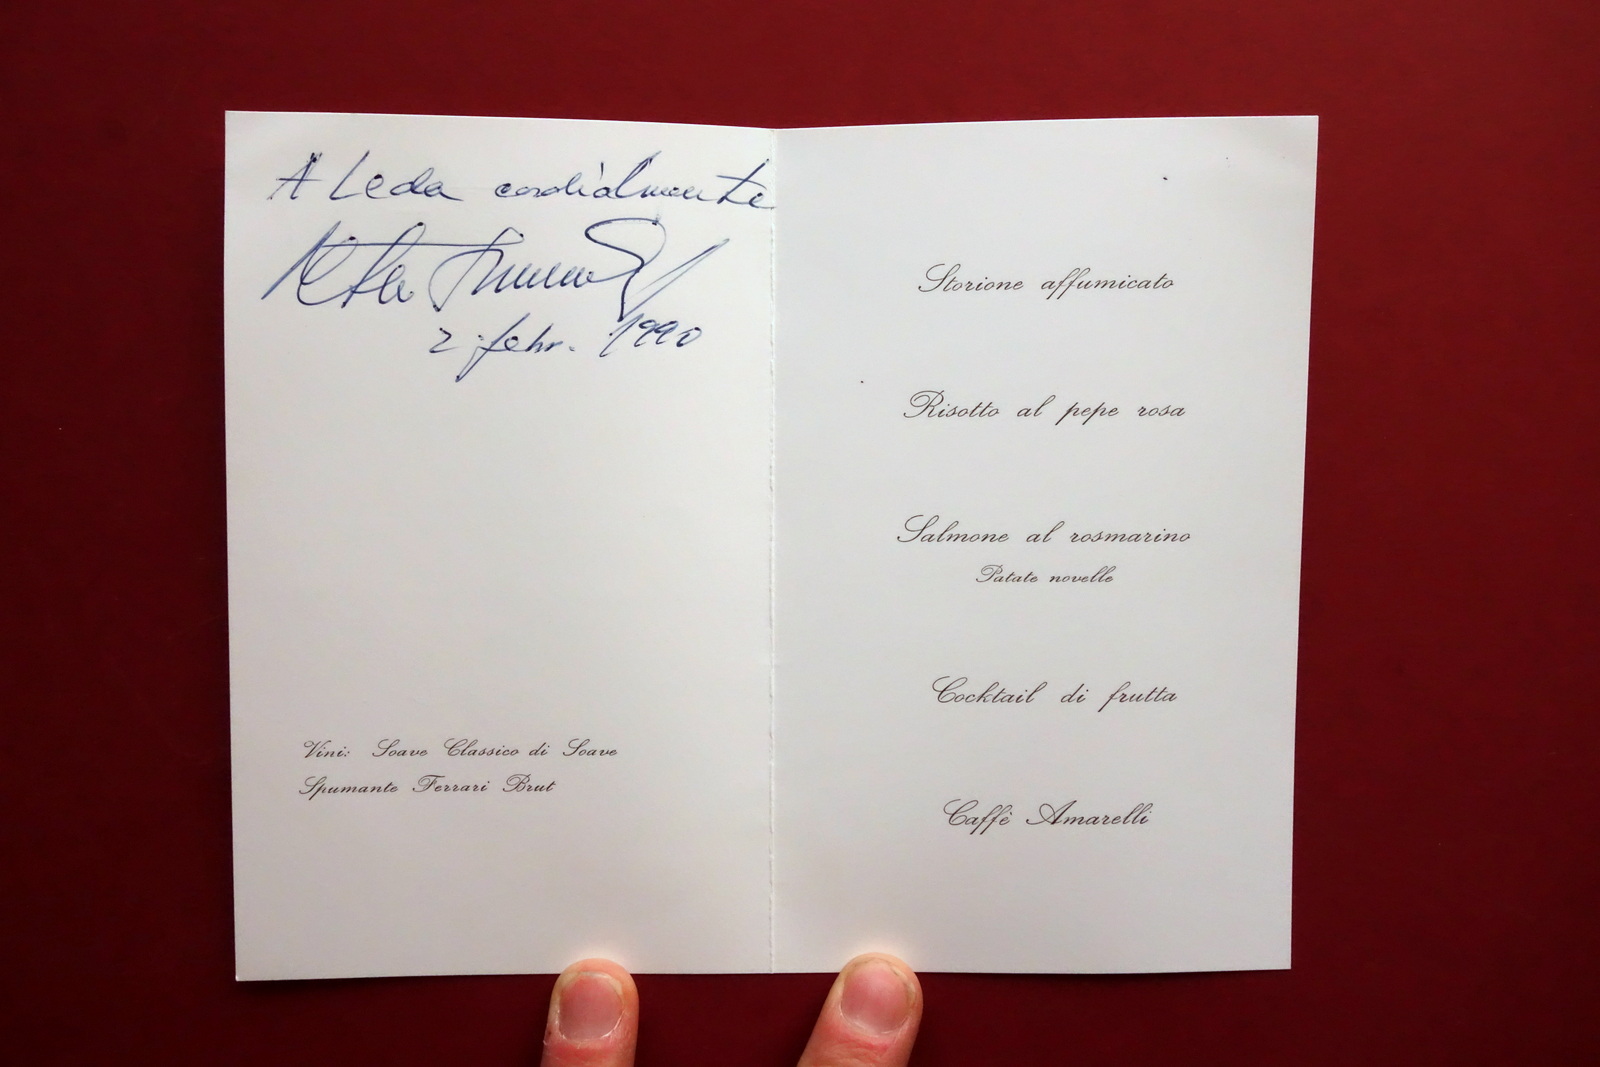 A Leda cordialmente
2 febr. 1990
Vini: Soave Classico di Soave
Spumante Ferrari Brut
Storione affumicato
Risotto al pepe rosa
Salmone al rosmarino
Patate novelle
Cocktail di frutta
Caffè Amarelli